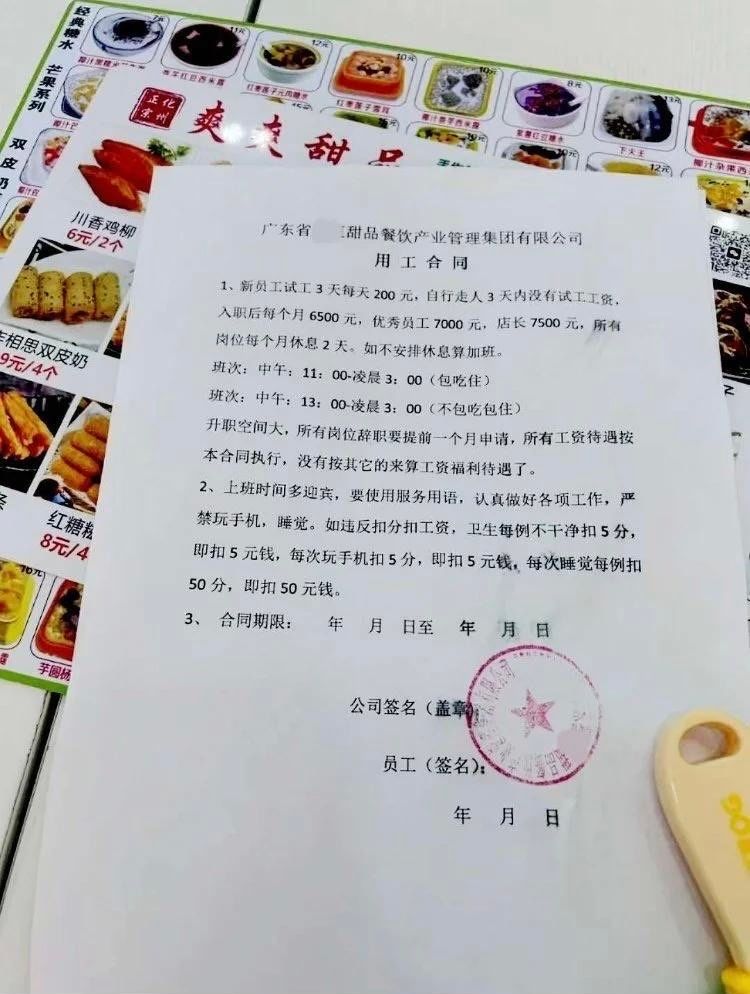 经典糖水
芒果系列
双皮奶
11元
12元
10元
10元
8元
13元
红枣莲子雪耳
下火王
12元
正化
宗州
爽爽甜品
川香鸡柳
6元/2个
相思双皮奶
9元/4个
红糖糍
8元/4
芋圆杨
广东省 甜品餐饮产业管理集团有限公司
用工合同
1、新员工试工3天每天200元，自行走人3天内没有试工工资，
入职后每个月6500元，优秀员工7000元，店长7500元，所有
岗位每个月休息2天。如不安排休息算加班。
班次：中午：11：00-凌晨3：00（包吃住）
班次：中午：13：00-凌晨3：00（不包吃包住）
升职空间大，所有岗位辞职要提前一个月申请，所有工资待遇按
本合同执行，没有按其它的来算工资福利待遇了。
2、上班时间多迎宾，要使用服务用语，认真做好各项工作，严
禁玩手机，睡觉。如违反扣分扣工资，卫生每例不干净扣5分，
即扣5元钱，每次玩手机扣5分，即扣5元钱，每次睡觉每例扣
50分，即扣50元钱。
3、 合同期限： 年 月 日至 年 月 日
公司签名（盖章）：
员工（签名）：
年 月 日